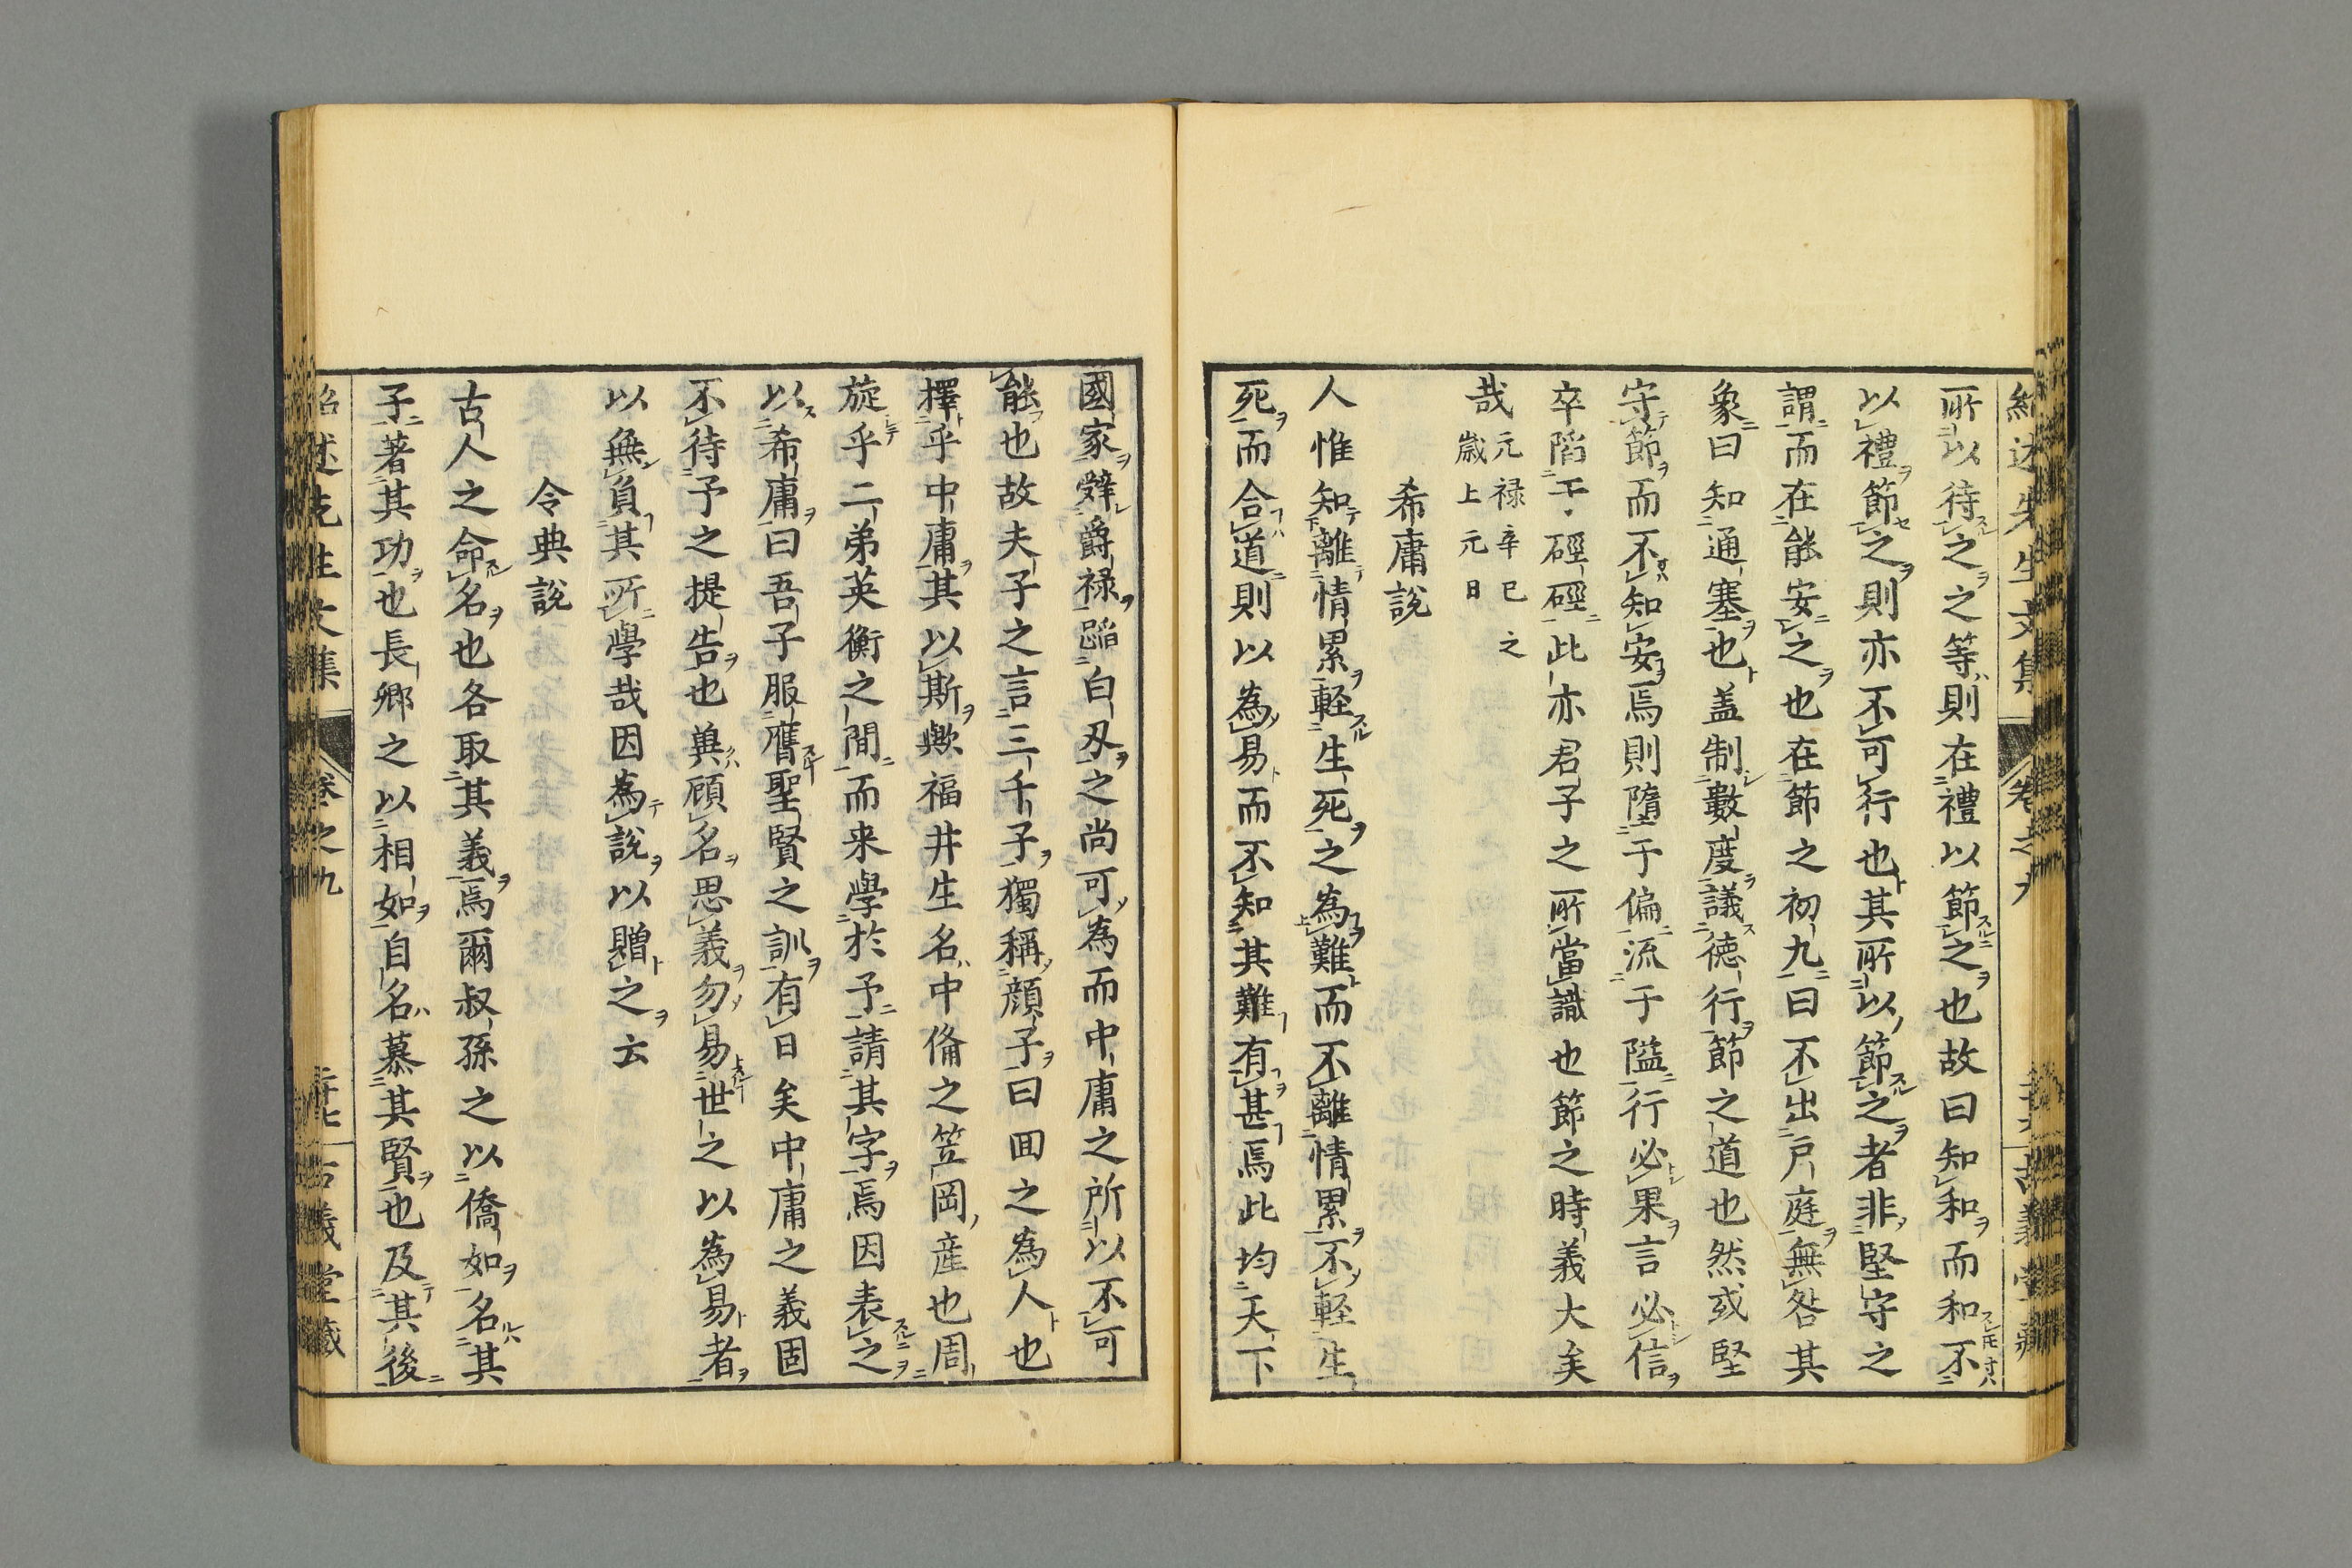 所以待之之等則在禮以節之也故曰知和而和不
以禮節之則亦不可行也其所以節之者非堅守之
謂而在能安之也在節之初九曰不出戶庭無咎其
象曰知通塞也盖制數度議德行節之道也然或堅
守節而不知安焉則墮于偏流于隘行必果言必信
卒陷于硜硜此亦君子之所當識也節之時義大矣
哉 元禄辛巳之
歳上元日
希庸說
人惟知離情累軽生死之為難而不離情累不軽生
死而合道則以為易而不知其難有甚焉此均天下
國家辭爵禄蹈白刃之尚可為而中庸之所以不可
能也故夫子之言三千子獨稱顔子曰囬之為人也
擇乎中庸其以斯歟福井生名中脩之笠岡産也周
旋乎二弟英衡之間而来學於予請其字焉因表之
以希庸曰吾子服膺聖賢之訓有日矣中庸之義固
不待予之提告也與顧名思義勿易世之以為易者
以無負其所學哉因為說以贈之云
令典說
古人之命名也各取其義焉爾叔孫之以僑如名其
子著其功也長卿之以相如自名慕其賢也及其後
紹述先生文集 卷之九 古義堂藏